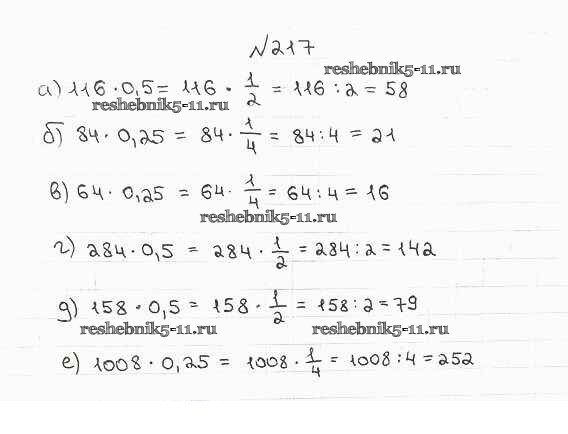 №217
reshebnik5-11.ru
а) 116 · 0,5 = 116 · 1/2 = 116 : 2 = 58
reshebnik5-11.ru
б) 84 · 0,25 = 84 · 1/4 = 84 : 4 = 21
в) 64 · 0,25 = 64 · 1/4 = 64 : 4 = 16
reshebnik5-11.ru
г) 284 · 0,5 = 284 · 1/2 = 284 : 2 = 142
д) 158 · 0,5 = 158 · 1/2 = 158 : 2 = 79
reshebnik5-11.ru reshebnik5-11.ru
е) 1008 · 0,25 = 1008 · 1/4 = 1008 : 4 = 252